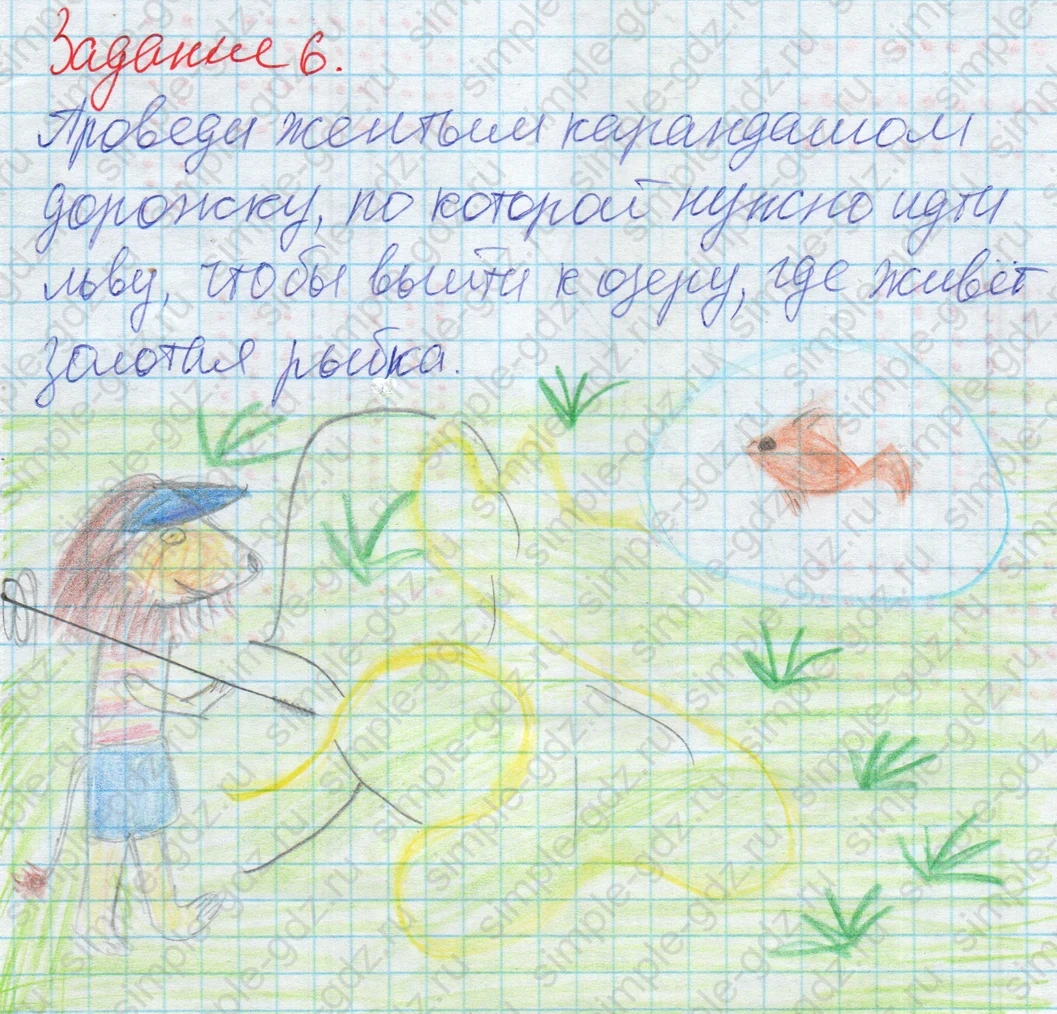 Задание 6.
Проведи желтым карандашом
дорожку, по которой нужно идти
льву, чтобы выйти к озеру, где живёт
золотая рыбка.
simple-gdz.ru